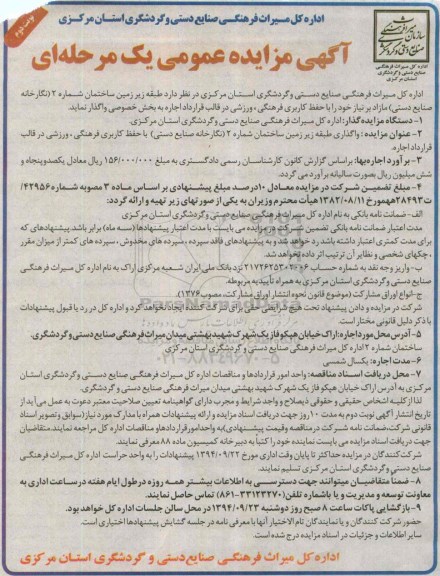 اداره کل میراث فرهنگی صنایع دستی وگردشگری استان مرکزی
نوبت دوم
اداره کل میراث فرهنگی
صنایع دستی وگردشگری
استان مرکزی
آگهی مزایده عمومی یک مرحله‌ای
اداره کل میراث فرهنگی صنایع دستی وگردشگری استان مرکزی در نظر دارد طبقه زیر زمین ساختمان شماره ۲ (نگارخانه
صنایع دستی) مازاد بر نیاز خود را با حفظ کاربری فرهنگی، ورزشی در قالب قرارداد اجاره به بخش خصوصی واگذار نماید.
۱- دستگاه مزایده گذار: اداره کل میراث فرهنگی صنایع دستی وگردشگری استان مرکزی.
۲- عنوان مزایده: واگذاری طبقه زیر زمین ساختمان شماره ۲ (نگارخانه صنایع دستی) با حفظ کاربری فرهنگی، ورزشی در قالب
قرارداد اجاره.
۳- برآورد اجاره‌بها: براساس گزارش کانون کارشناسان رسمی دادگستری به مبلغ ۱۵۶/۰۰۰/۰۰۰ ریال معادل یکصدوپنجاه و
شش میلیون ریال بصورت سالیانه برآورد می گردد.
۴- مبلغ تضمین شرکت در مزایده معادل ۱۰درصد مبلغ پیشنهادی بر اساس ماده ۳ مصوبه شماره ۴۲۹۵۶/
ت۲۸۴۹۳ه مورخ ۱۳۸۲/۰۸/۱۱ هیأت محترم وزیران به یکی از صورتهای زیر تهیه و ارائه گردد:
الف - ضمانت نامه بانکی به نام اداره کل میراث فرهنگی صنایع دستی وگردشگری استان مرکزی.
مدت اعتبار ضمانت نامه بانکی تضمین شرکت در مزایده می بایست با مدت اعتبار پیشنهادها (سه ماه) برابر باشد پیشنهادهای که
برای مدت کمتری اعتبار داشته باشد رد خواهد شد و به پیشنهادهای فاقد سپرده، سپرده های مخدوش، سپرده های کمتر از میزان مقرر
، چکهای شخصی و نظایر آن ترتیب اثر داده نخواهد شد.
ب - واریز وجه نقد به شماره حساب نزد بانک ملی ایران شعبه مرکزی اراک به نام اداره کل میراث فرهنگی
صنایع دستی وگردشگری استان مرکزی به همراه تأییدیه مربوطه.
ج- انواع اوراق مشارکت (موضوع قانون نحوه انتشار اوراق مشارکت، مصوب ۱۳۷۶)
شرکت در مزایده و دادن پیشنهاد تحت هیچ شرایطی حقی برای شرکت کننده ایجاد نخواهد کرد و اداره کل در رد یا قبول پیشنهادات
با ذکر دلیل قانونی مختار است.
۵- آدرس محل مورد اجاره: اراک خیابان هپکو فاز یک شهرک شهید بهشتی میدان میراث فرهنگی صنایع دستی وگردشگری.
ساختمان شماره ۲ اداره کل میراث فرهنگی صنایع دستی وگردشگری استان مرکزی.
۶- مدت اجاره: یکسال شمسی
۷- محل دریافت اسناد مناقصه: واحد امور قراردادها و مناقصات اداره کل میراث فرهنگی صنایع دستی وگردشگری استان
مرکزی به آدرس اراک خیابان هپکو فاز یک شهرک شهید بهشتی میدان میراث فرهنگی صنایع دستی وگردشگری.
لذا از کلیه اشخاص حقیقی و حقوقی ذیصلاح و واجد شرایط و مجرب دارای گواهینامه تعیین صلاحیت معتبر دعوت به عمل می آید از
تاریخ انتشار آگهی نوبت دوم به مدت ۱۰ روز جهت دریافت اسناد مزایده و ارائه پیشنهادات همراه با مدارک مورد نیاز (سوابق و تصویر اسناد
قانونی شرکت، ضمانت نامه شرکت در مناقصه و قیمت پیشنهادی) به واحد امور قراردادها و مناقصات اداره کل مراجعه نمایند. متقاضیان
جهت دریافت اسناد مزایده می بایست نماینده خود را کتباً به دبیرخانه کمیسیون ماده ۸۸ معرفی نمایند.
شرکت کنندگان در مزایده حداکثر تا پایان وقت اداری مورخ ۱۳۹۴/۰۹/۲۲ پیشنهادات را به واحد حراست اداره کل میراث فرهنگی
صنایع دستی وگردشگری استان مرکزی تسلیم نمایند.
۸- ضمنا متقاضیان میتوانند جهت دسترسی به اطلاعات بیشتر همه روزه در طول ایام هفته در ساعت اداری به
معاونت توسعه و مدیریت و یا باشماره تلفن (۳۳۱۲۳۲۷۰-۰۸۶۱) تماس حاصل نمایند.
۹- بازگشایی پاکات ساعت ۸ صبح روز دوشنبه ۱۳۹۴/۰۹/۲۳ در محل سالن جلسات اداره کل خواهد بود.
حضور شرکت کنندگان و یا نمایندگان تام الاختیار آنها با معرفی نامه در جلسه گشایش پیشنهادها اختیاری است.
سایر اطلاعات و جزئیات در اسناد مزایده درج شده است.
اداره کل میراث فرهنگی صنایع دستی و گردشگری استان مرکزی